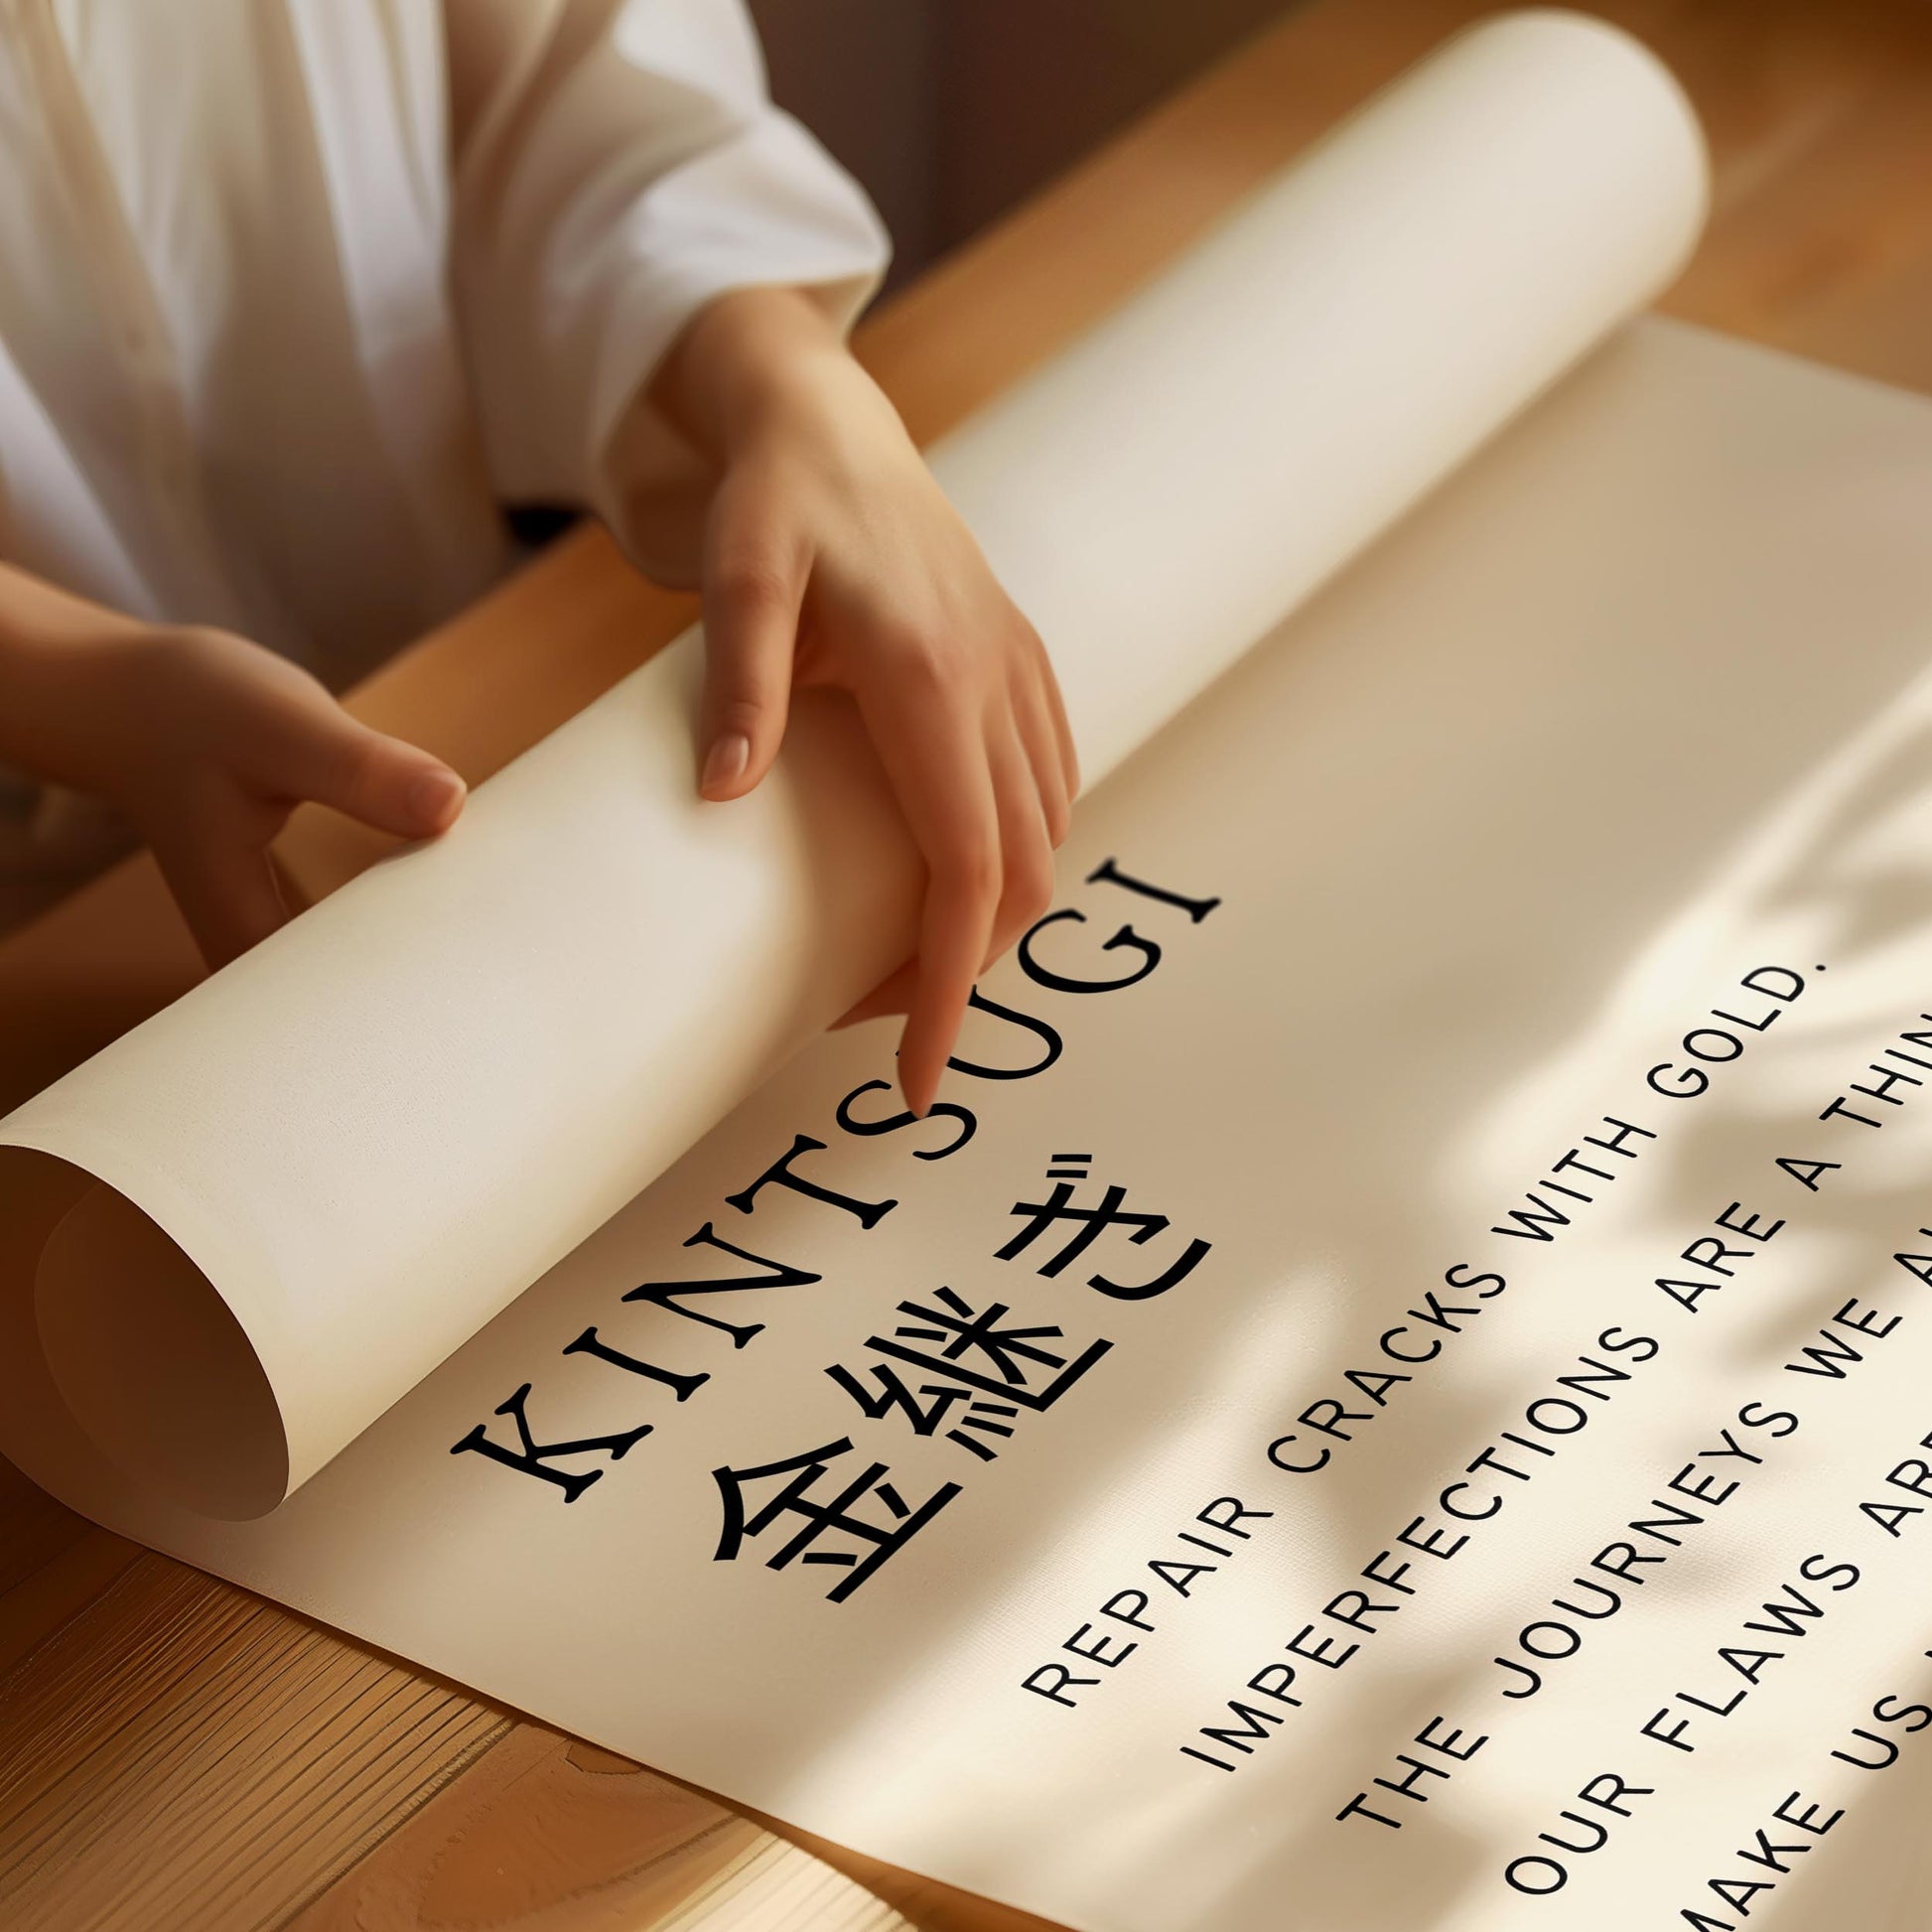 KINTSUGI
金継ぎ
REPAIR CRACKS WITH GOLD.
IMPERFECTIONS ARE A
THE JOURNEYS WE
OUR FLAWS
MAKE US